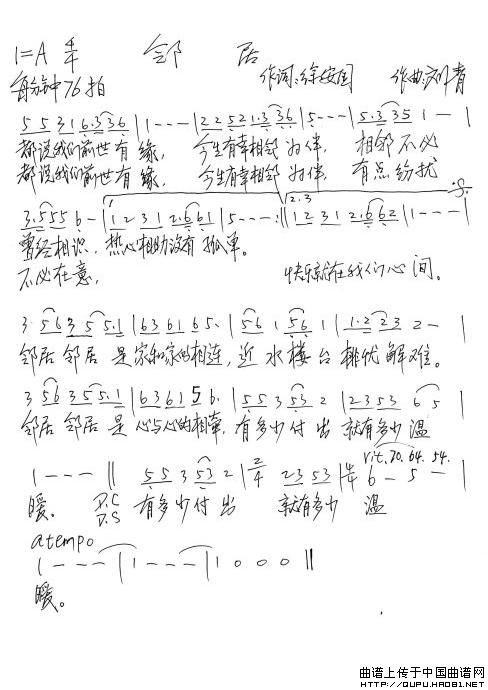 1=A 4/4 邻 居
每分钟76拍 作词:徐安国 作曲:刘青
5 5 3 1 6.3 3 6 | 1 - - - | 2 2 5 2 1.3 3 6 | 5 - - - | 5.3 3 5 1 - |
都说我们前世有缘, 今生有幸相邻为伴, 相邻不必
都说我们前世有缘, 今生有幸相邻为伴, 有点纷扰
3.5 5 5 6 - | 1 2 3 1 2.6 6 1 | 5 - - - :|| 1 2 3 1 2.6 6 2 | 1 - - - |
曾经相识, 热心相助没有孤单。
不必在意, 快乐就在我们心间。
3 5 6 3 5 5.1 | 6 3 6 1 6 5. | 5 6 1 5 6 1 | 1.2 2 3 2 - |
邻居 邻居 是家和家的相连, 近水楼台排忧解难。
3 5 6 3 5 5.1 | 6 3 6 1 5 6. | 5 5 3 5 3 2 | 2 3 5 3 6 5 |
邻居 邻居 是心与心的相牵, 有多少付出 就有多少温
rit. 70. 64. 54.
1 - - - || 5 5 3 5 3 2 | 2/4 2 3 5 3 | 4/4 6 - 5 - |
暖。 D.C 有多少付出 就有多少 温
D.S
atempo
1 - - - | 1 - - - | 1 0 0 0 ||
暖。
曲谱上传于中国曲谱网
HTTP://QUPU.HAO81.NET